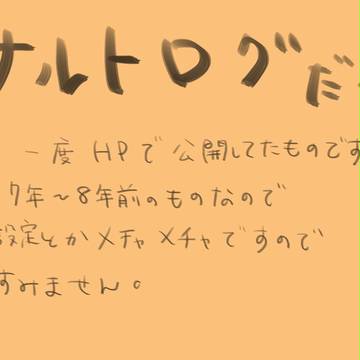 サルトログだ
一度HPで公開してたものです
7年〜8年前のものなので
設定とかメチャメチャですので
すみません。